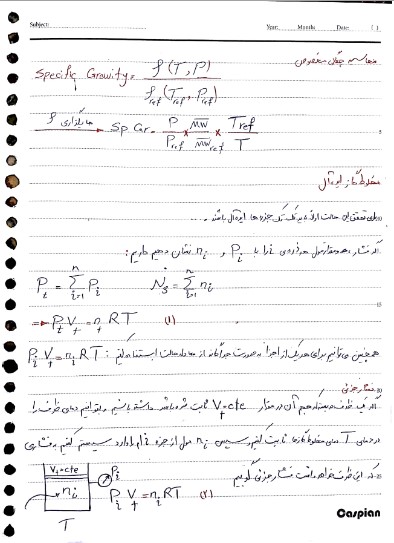 Subject: Year. Month. Date. ( )
محاسبه چگالی مخصوص
Specific Gravity = ρ(T, P) / ρref (Tref, Pref)
جایگذاری ρ → Sp Gr = P/Pref × MW/MWref × Tref/T
مخلوط گاز ایده آل
برای تحقق این حالت لازم است تک تک جزءها ایده آل باشند ...
اگر فشار و مقدار مول هر جزء i را با Pi و ni نشان دهیم داریم:
Pt = Σ(i=1..n) Pi    Ns = Σ(i=1..n) ni
⇒ Pt Vt = nt RT (1)
همچنین می توانیم برای هر یک از اجزا به صورت جداگانه از معادله حالت استفاده کنیم: Pi Vt = ni RT
فشار جزئی
اگر یک ظرف در بسته که حجم آن در مقدار Vt = cte ثابت شده باشد داشته باشیم و بتوانیم دمای ظرف را
در دمای T دمای مخلوط گازها ثابت کنیم و سپس ni مول از جزء i ام را وارد سیستم کنیم به فشاری
که این ظرف خواهد داشت فشار جزئی گوییم
Vt = cte
ni
Pi
Pi Vt = ni RT (2)
T
Caspian